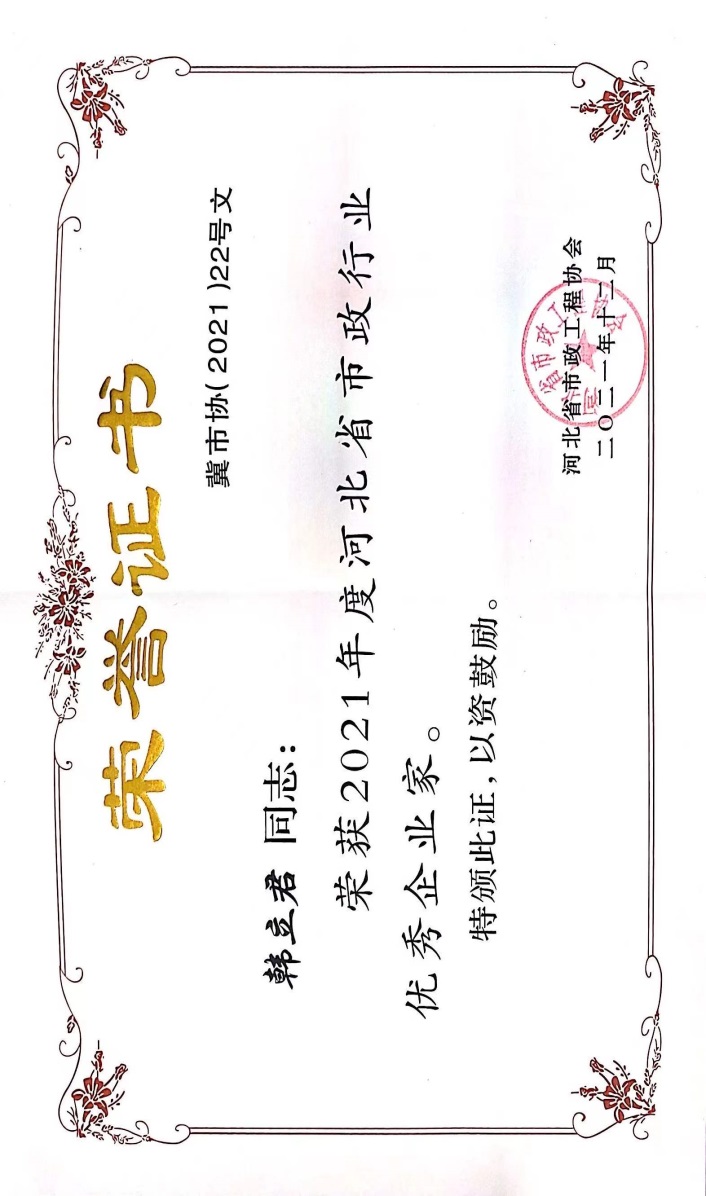 荣誉证书
冀市协(2021)22号文
韩立君 同志：
荣获2021年度河北省市政行业
优秀企业家。
特颁此证，以资鼓励。
河北省市政工程协会
二〇二一年十二月